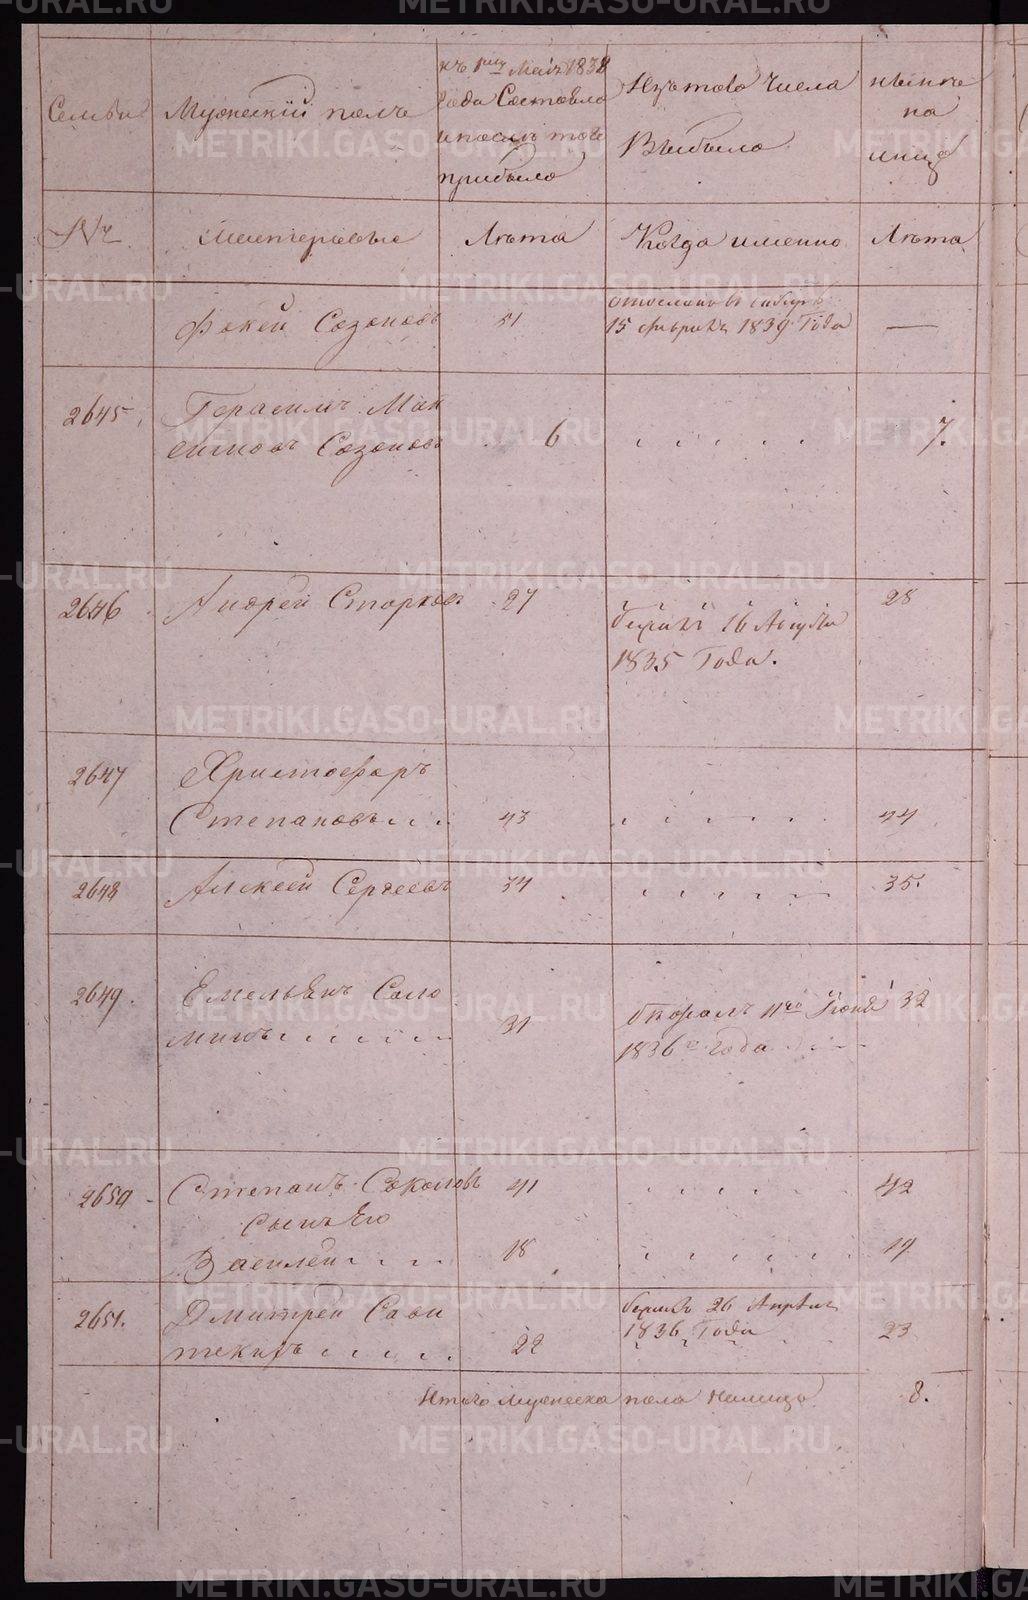 Семьи
Мужескiй полъ
къ 1му Маiя 1838
года Состояло
и послѣ того
прибыло
Изъ того Числа
Выбыло
нынѣ
на
лицо
№
Мастеровые
Лѣта
Когда именно
Лѣта
Фокей Созоновъ
51
отосланъ в сибирь
15 февраля 1839 Года
—
2645
Герасимъ Мак
симовъ Созоновъ
6
7.
2646
Андрей Старковъ
27
бежалъ 16 Августа
1835 Года.
28
2647
Христофоръ
Степановъ
43
44
2648
Алексей Сергеевъ
34
35.
2649.
Емельянъ Соло
минъ
31
11го Iюня
1836го года
32
2650
Степанъ Соколовъ
41
42
Сынъ Его
Василей
18
19
2651.
Дмитрей
22
26 Апреля
1836 Года
23
Итого мужеска пола налицо
8.
METRIKI.GASO-URAL.RU